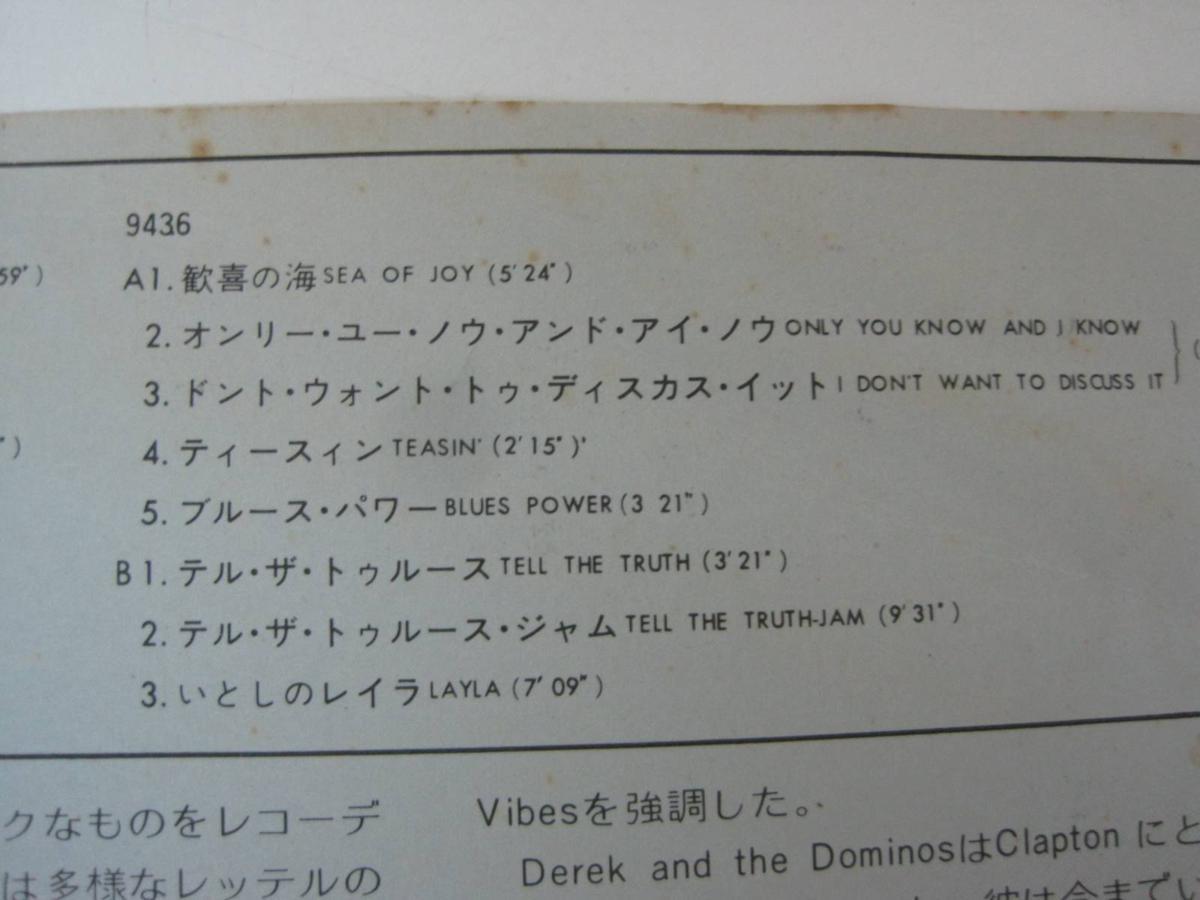 9436
59")
A1. 歓喜の海 SEA OF JOY (5'24")
2. オンリー・ユー・ノウ・アンド・アイ・ノウ ONLY YOU KNOW AND I KNOW
3. ドント・ウォント・トゥ・ディスカス・イット I DON'T WANT TO DISCUSS IT
4. ティースィン TEASIN' (2'15")'
5. ブルース・パワー BLUES POWER (3 21")
B1. テル・ザ・トゥルース TELL THE TRUTH (3'21")
2. テル・ザ・トゥルース・ジャム TELL THE TRUTH-JAM (9'31")
3. いとしのレイラ LAYLA (7'09")
クなものをレコーデ
は多様なレッテルの
Vibesを強調した。
Derek and the DominosはClapton にと
彼は今までい